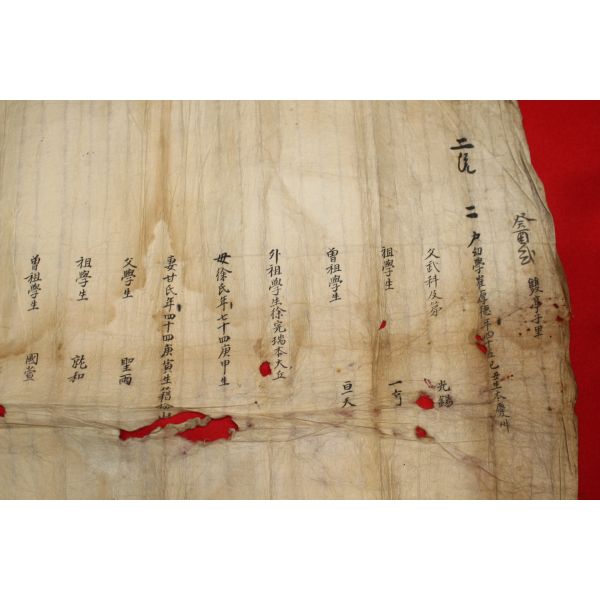 癸酉式 雙亭子里
二統
二 戶幼學崔厚德年四十五己丑生本慶州
父武科及第 光
祖學生 一亨
曾祖學生 亘天
外祖學生徐完瑞本大丘
母徐氏年七十四庚申生
妻甘氏年四十四庚寅生籍
父學生 聖雨
祖學生 就和
曾祖學生 國萱